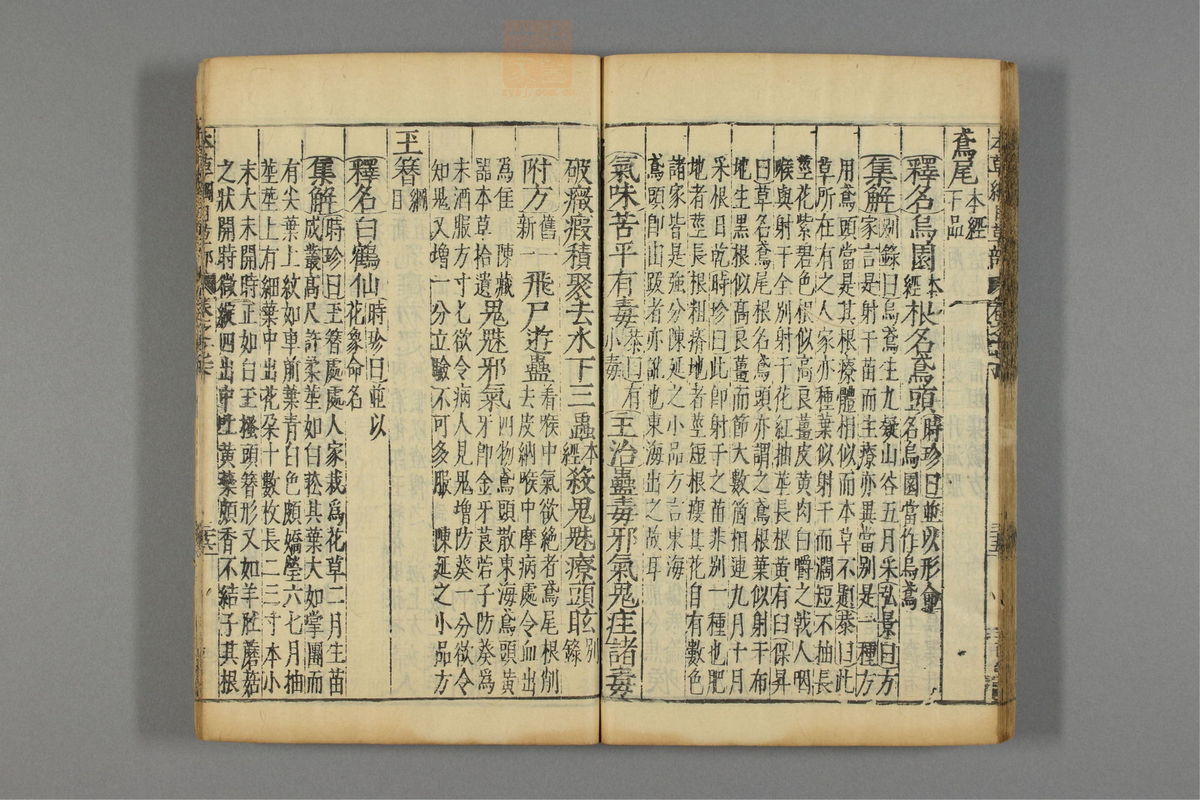 鳶尾本經下品
釋名烏園本經根名鳶頭時珍曰並以形命名烏園當作烏鳶
集解別錄曰烏鳶生九疑山谷五月采弘景曰方家言是射干苗而主療亦異當別是一種方
用鳶頭當是其根療體相似而本草不題恭曰此
草所在有之人家亦種葉似射干而闊短不抽長
莖花紫碧色根似高良薑皮黃肉白嚼之戟人咽
喉與射干全別射干花紅抽莖長根黃有臼保昇
曰草名鳶尾根名鳶頭亦謂之鳶根葉似射干布
地生黑根似高良薑而節大數箇相連九月十月
采根日乾時珍曰此即射干之苗非別一種也肥
地者莖長根粗瘠地者莖短根瘦其花自有數色
諸家皆是強分陳延之小品方言東海
鳶頭即由跋者亦訛也東海出之故耳
氣味苦平有毒恭曰有小毒主治蠱毒邪氣鬼疰諸毒
破癥瘕積聚去水下三蟲本經殺鬼魅療頭眩別錄
附方舊一新一飛尸遊蠱着喉中氣欲絕者鳶尾根削去皮納喉中摩病處令血出
為佳陳藏噐本草拾遺鬼魅邪氣四物鳶頭散東海鳶頭黃牙即金牙莨菪子防葵為
末酒服方寸匕欲令病人見鬼增防葵一分欲令
知鬼又增一分立驗不可多服陳延之小品方
玉簪綱目
釋名白鶴仙時珍曰並以花象命名
集解時珍曰玉簪處處人家栽為花草二月生苗成叢高尺許柔莖如白菘其葉大如掌團而
有尖葉上紋如車前葉青白色頗嬌瑩六七月抽
莖莖上有細葉中出花朵十數枚長二三寸本小
末大未開時正如白玉搔頭簪形又如羊肚蘑菇
之狀開時微綻四出中吐黃蘂頗香不結子其根